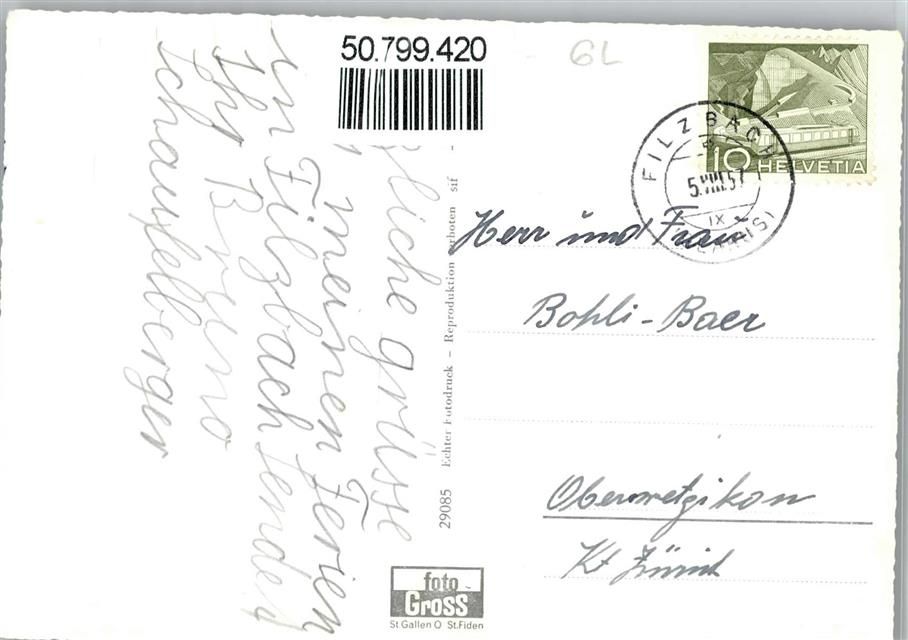 50.799.420
GL
10 HELVETIA
FILZBACH
5.VIII.57
IX
(GLARUS)
Herr und Frau
Bohli-Baer
Oberwetzikon
Kt Zürich
zliche grüsse
meinen Ferien
in Filzbach sendet
Ihr Bruno
Schaufelberger
29085 Echter Fotodruck – Reproduktion verboten sif
foto
GROSS
St Gallen O St.Fiden